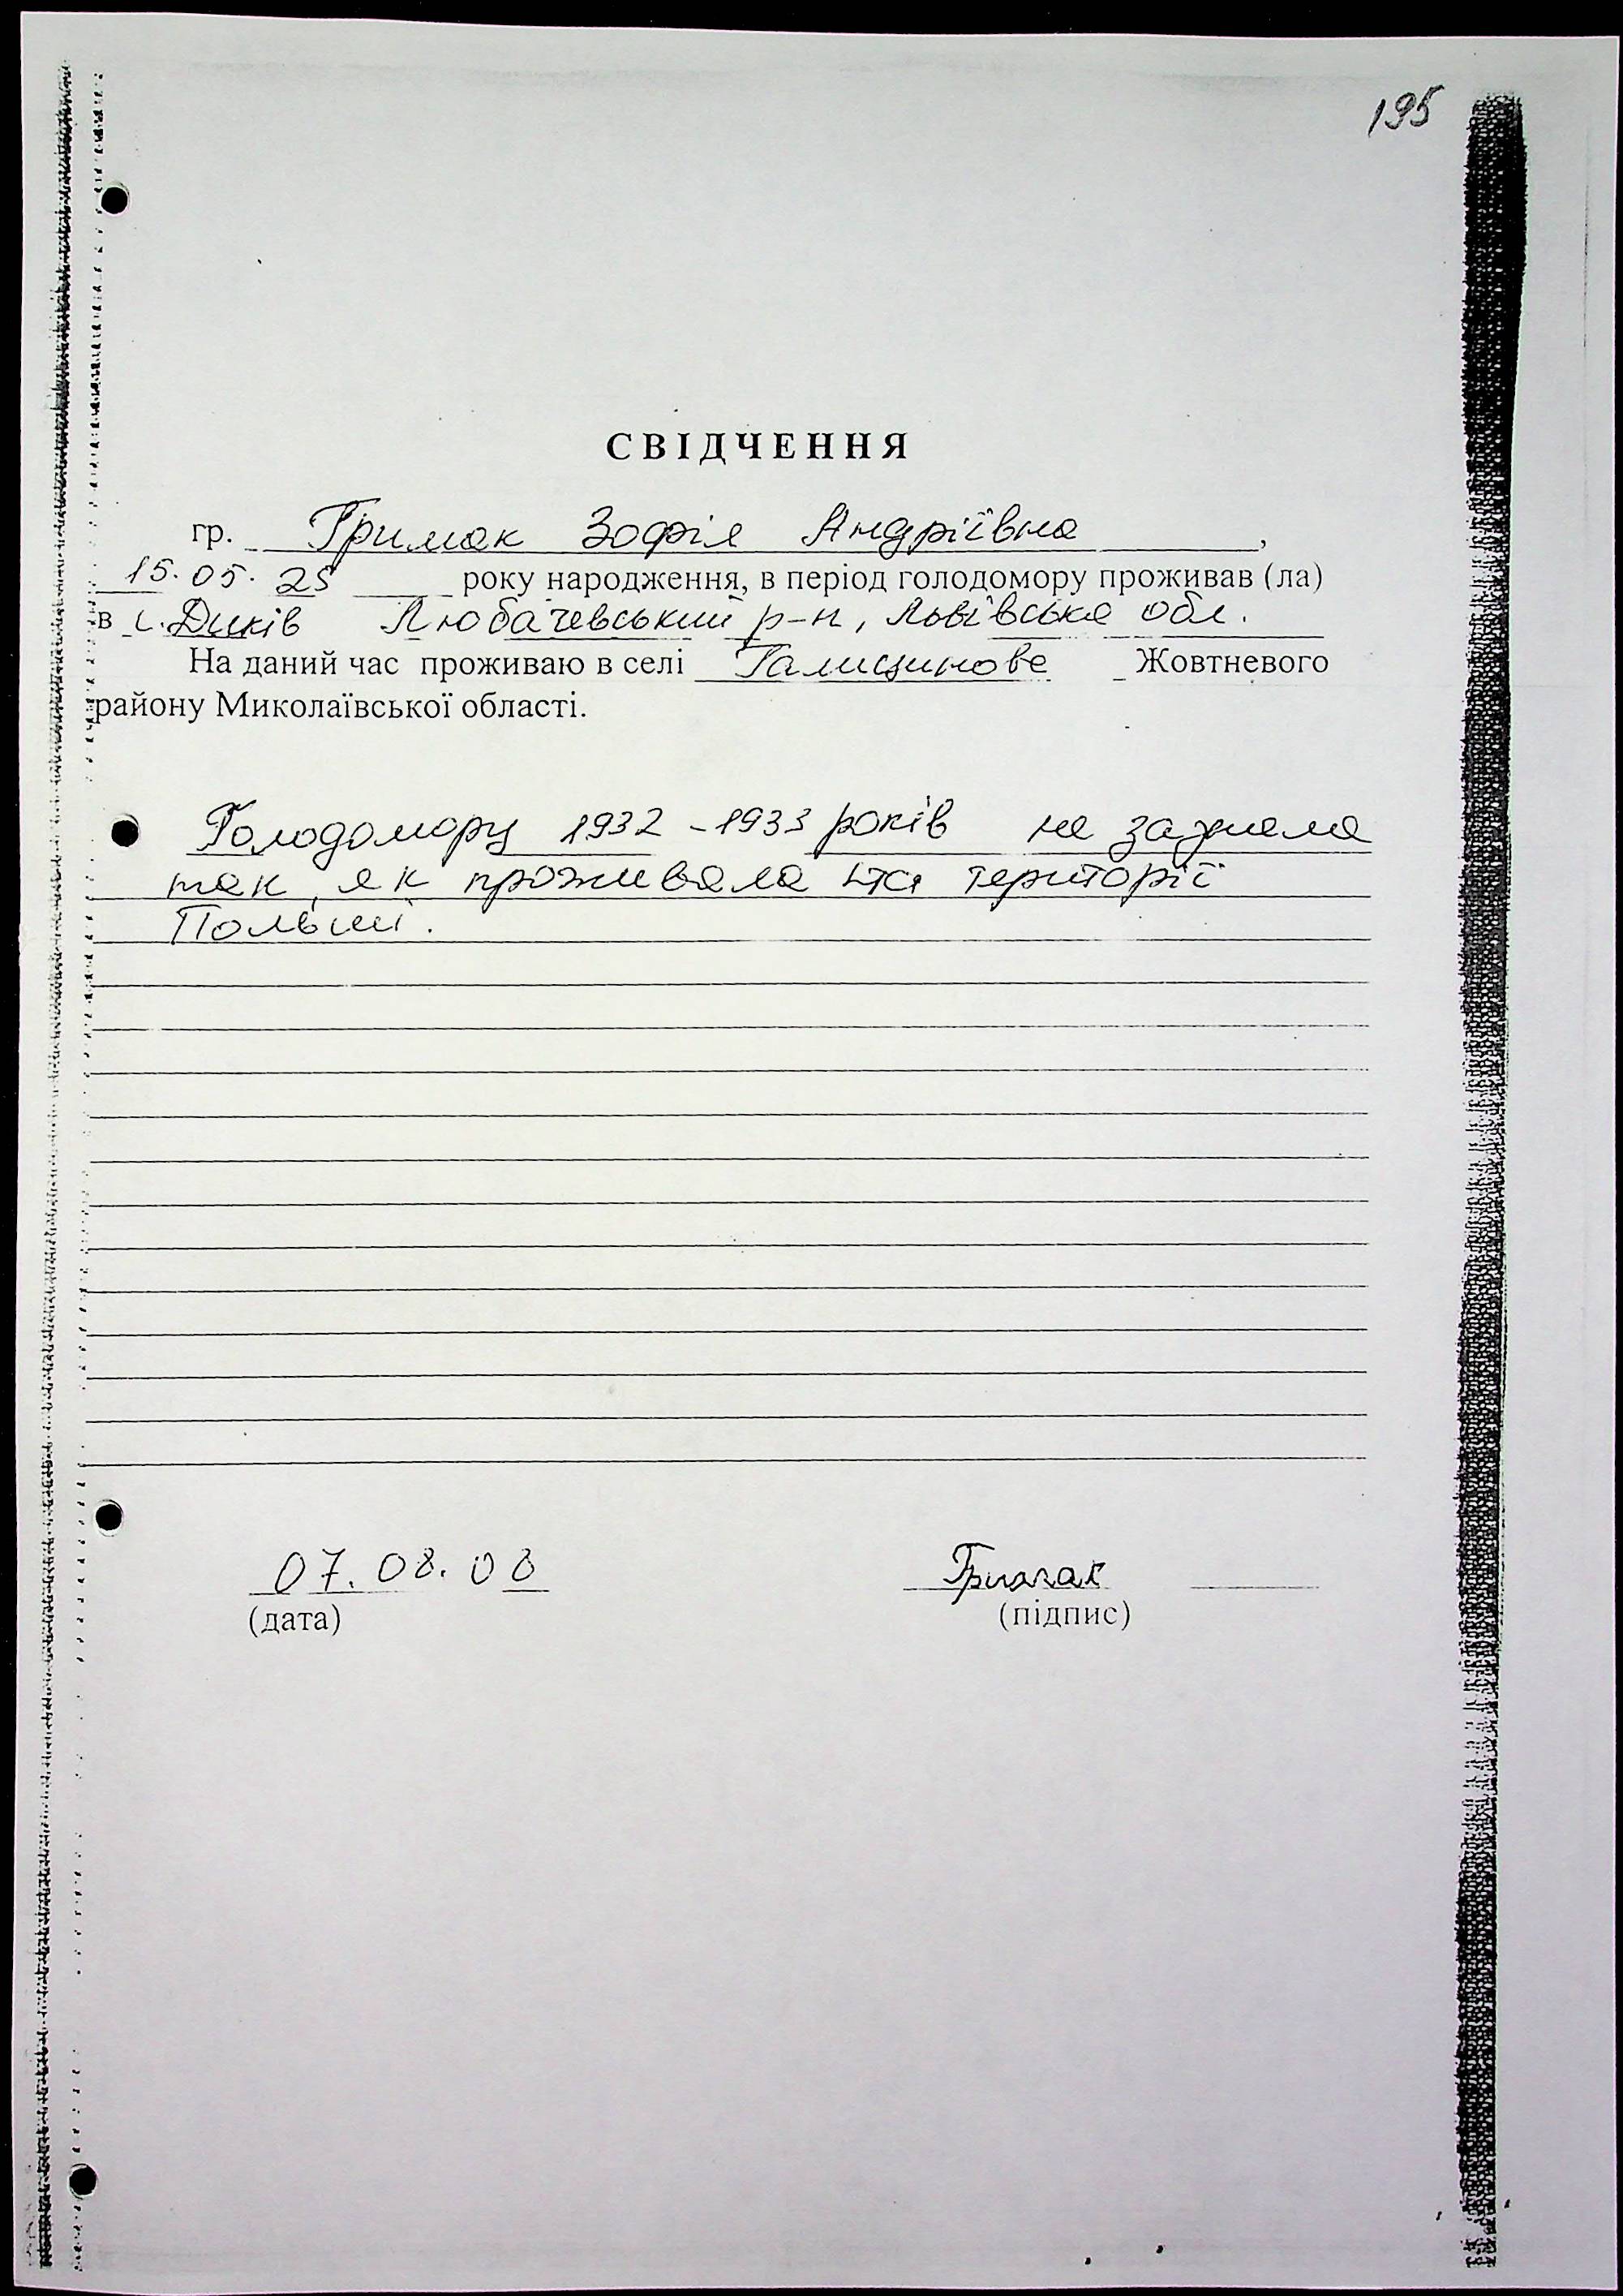 195
СВІДЧЕННЯ
гр. Гримак Зофія Андріївна,
15.05.25 року народження, в період голодомору проживав (ла)
в с. Диків Любачевський р-н, Львівська обл.
На даний час проживаю в селі Галицинове Жовтневого
району Миколаївської області.
Голодомору 1932-1933 років не зазнала
так, як проживала на території
Польші.
07.08.08 Гримак
(дата) (підпис)